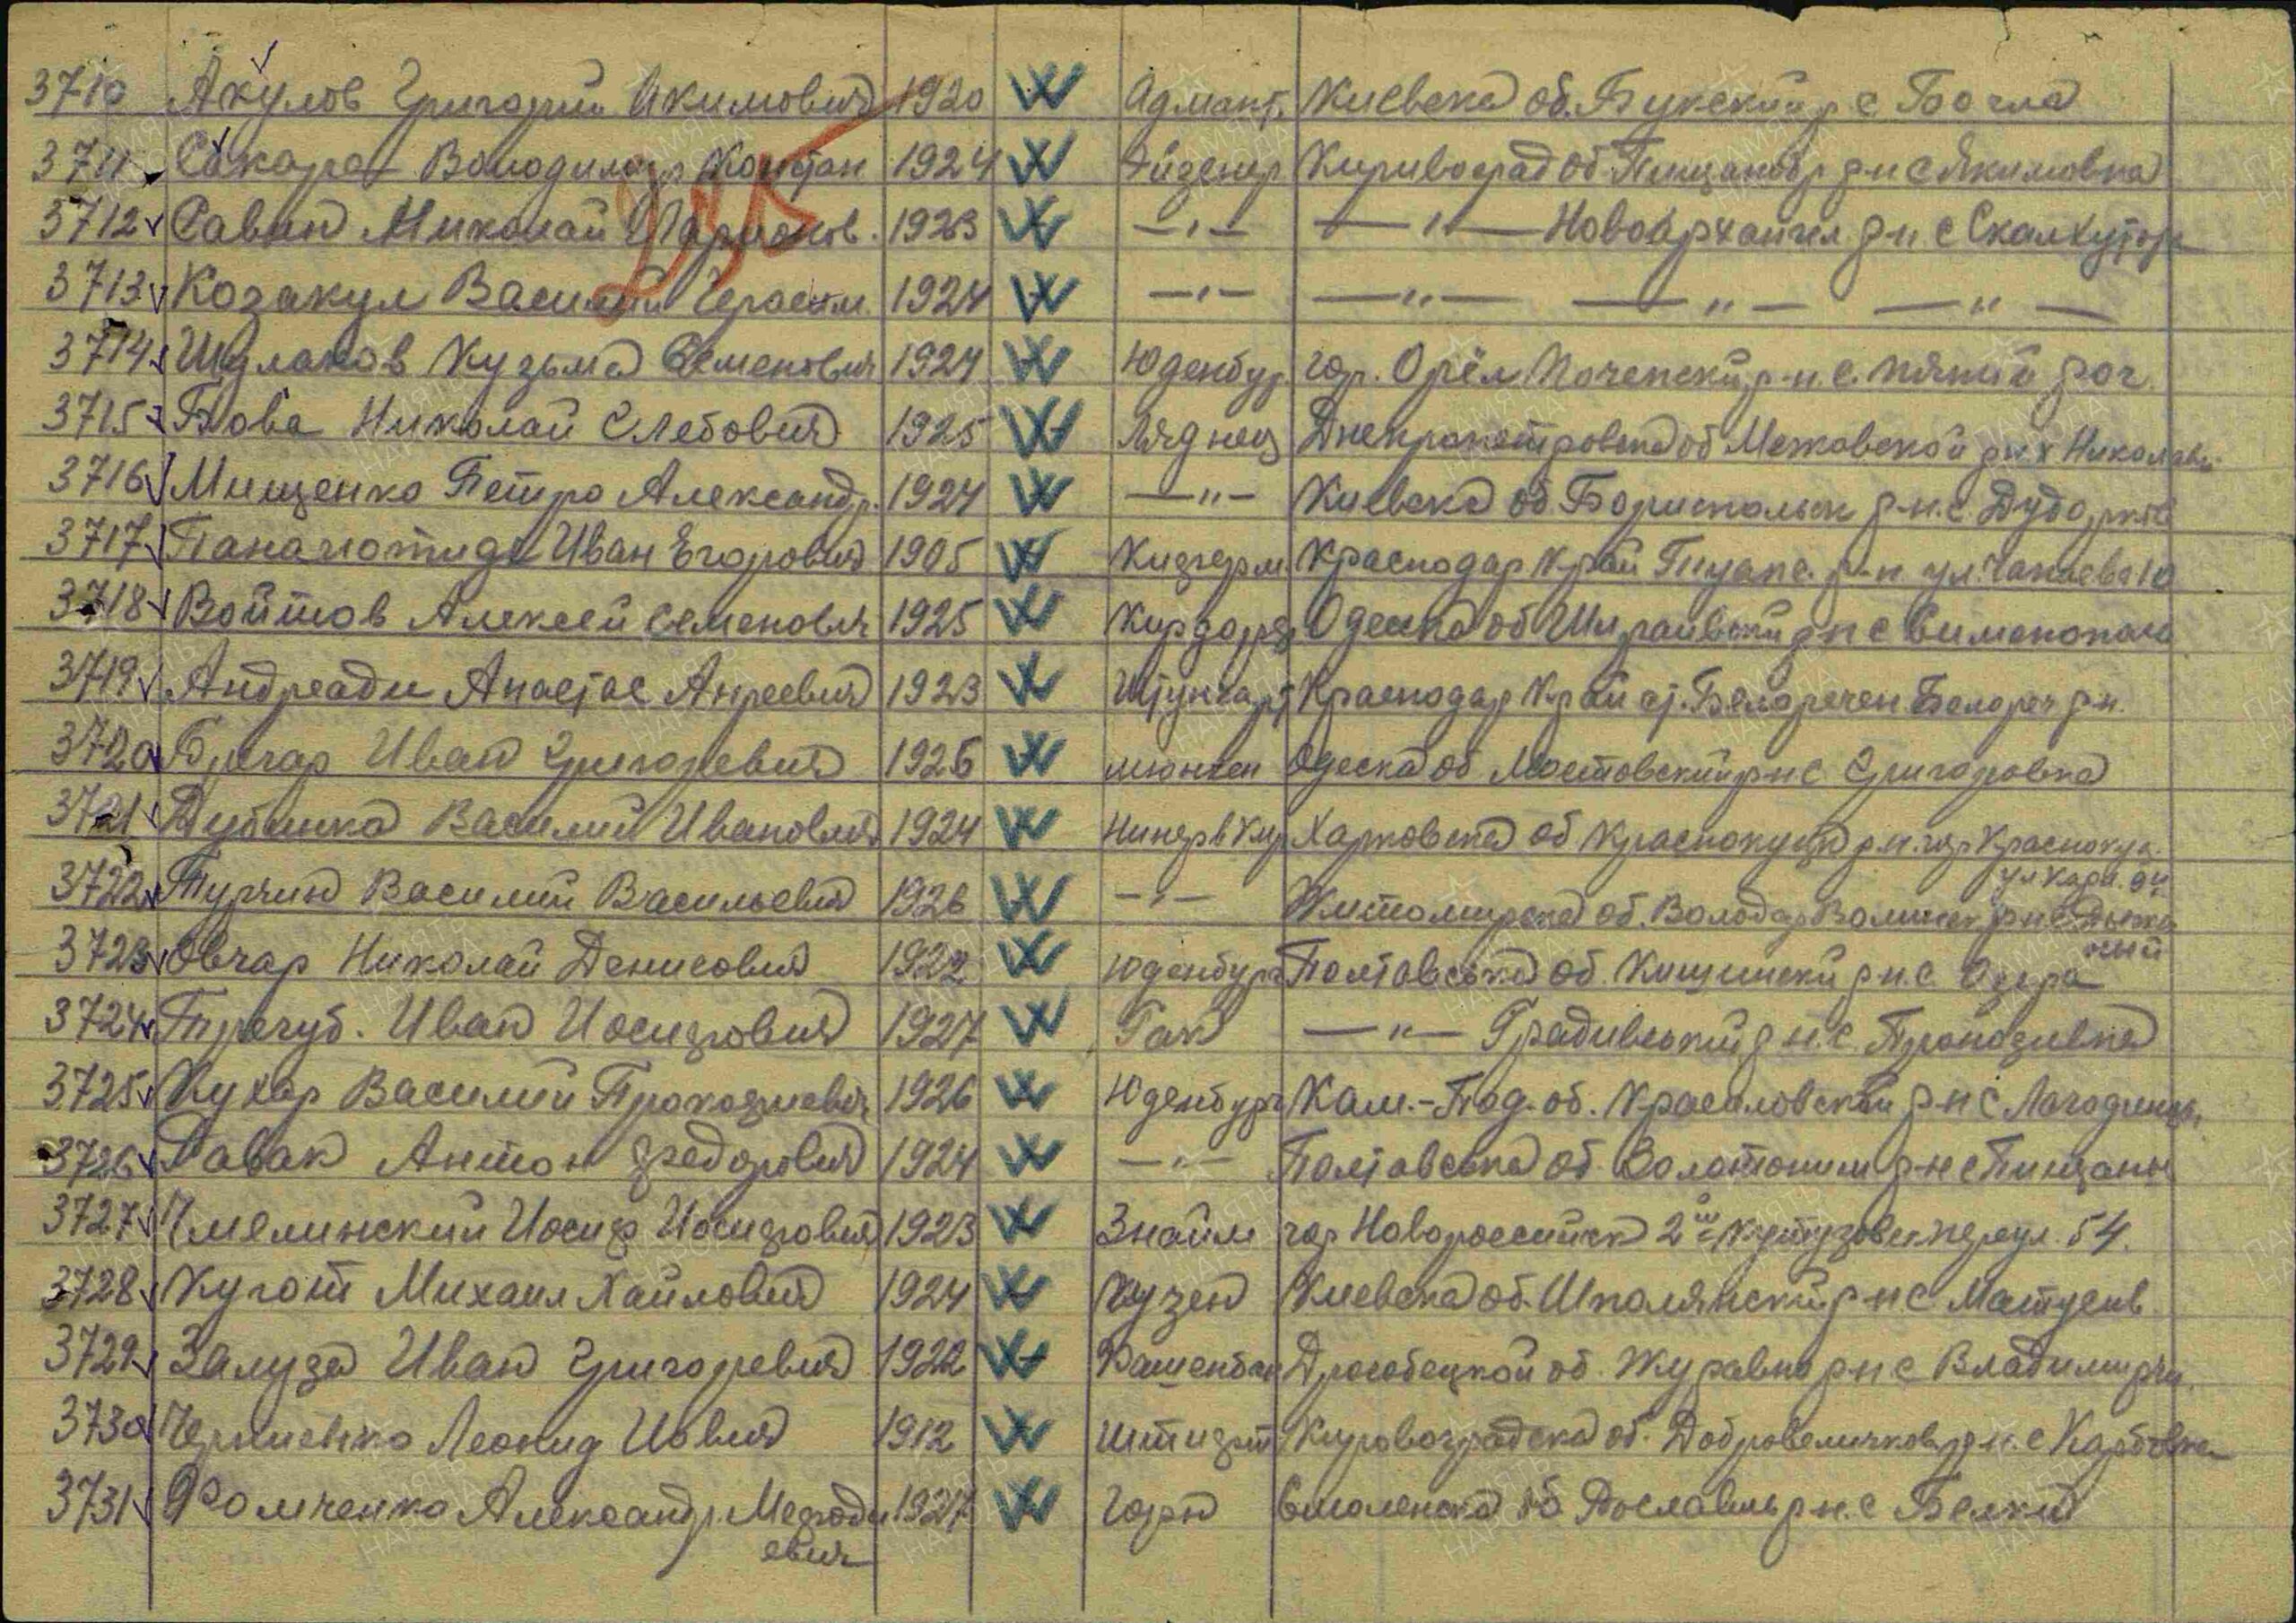 3710 Акулов Григорий Икимович 1920 Адмонт. Киевска об. Букский р с Богла
3711 Сакара Володимир Констан 1924 Кировоград об. Пищанобр р-н с Якимовка
3712 Саван Миколай Иларионов. 1923 —"— —"— Новоархангел. р-н с Скалхутор
3713 Козакул Василий Герасим. 1924 —"— —"— —"— —"—
3714 Шулаков Кузьма Семенович 1924 Юденбур. гор. Орёл Почепский р-н. с.
3715 Бова Николай Глебович 1925 Днепропетровска об Межовской р-н х Николаев
3716 Мищенко Петро Александр. 1924 —"— Киевска об. Борисполск р-н. с. Дударків
3717 Панаиотиди Иван Егорович 1905 Краснодар Край Туапс. р-н. ул. Чапаева 10
3718 Войтов Алексей Семенович 1925 Одеска об Ширяивский р-н с
3719 Андреади Анастас Анреевич 1923 Штунгарт Краснодар Край ст. Белоречен Белореч р-н.
3720 Бричар Иван Григоревич 1926 мюнхен Одеска об. Мостовский р-н с Григоровка
3721 Дубинка Василий Иванович 1924 Харковска об Краснокутск р.н. гор Краснокут.
ул Карл.
3722 Турчин Василий Васильевич 1926 —"— Житомирска об. Володар Волинск р-н с
3723 Овчар Николай Денисович 1922 Юденбург Полтавська об. Кишинский р-н. с. Озера
3724 Трегуб. Иван Иосифович 1927 Гак —"— Градивський р-н. с. Прокозивка
3725 Кухар Василий Прокофиевич 1926 Юденбург Кам.-Под. об. Красиловский р-н с
3726 Савак Антон Федорович 1924 —"— Полтавська об. Золотоним р-н с Пищани
3727 Чмелинский Иосиф Иосифович 1923 Знайм гор Новороссийск 2й Кутузовск переул. 54.
3728 Куготт Михаил Хаилович 1924 Киевска об. Шполянский р-н с Матусив
3729 Залуза Иван Григоревич 1922 Драгобецкой об. Журавно р-н с Владимирц.
3730 Черниенко Леонид Иович 1912 Кировоградска об. Добровеличков р-н. с Карбовка
3731 Фомченко Александр. Мефоди 1927 Смоленска об Рославль р-н. с Белки
евич